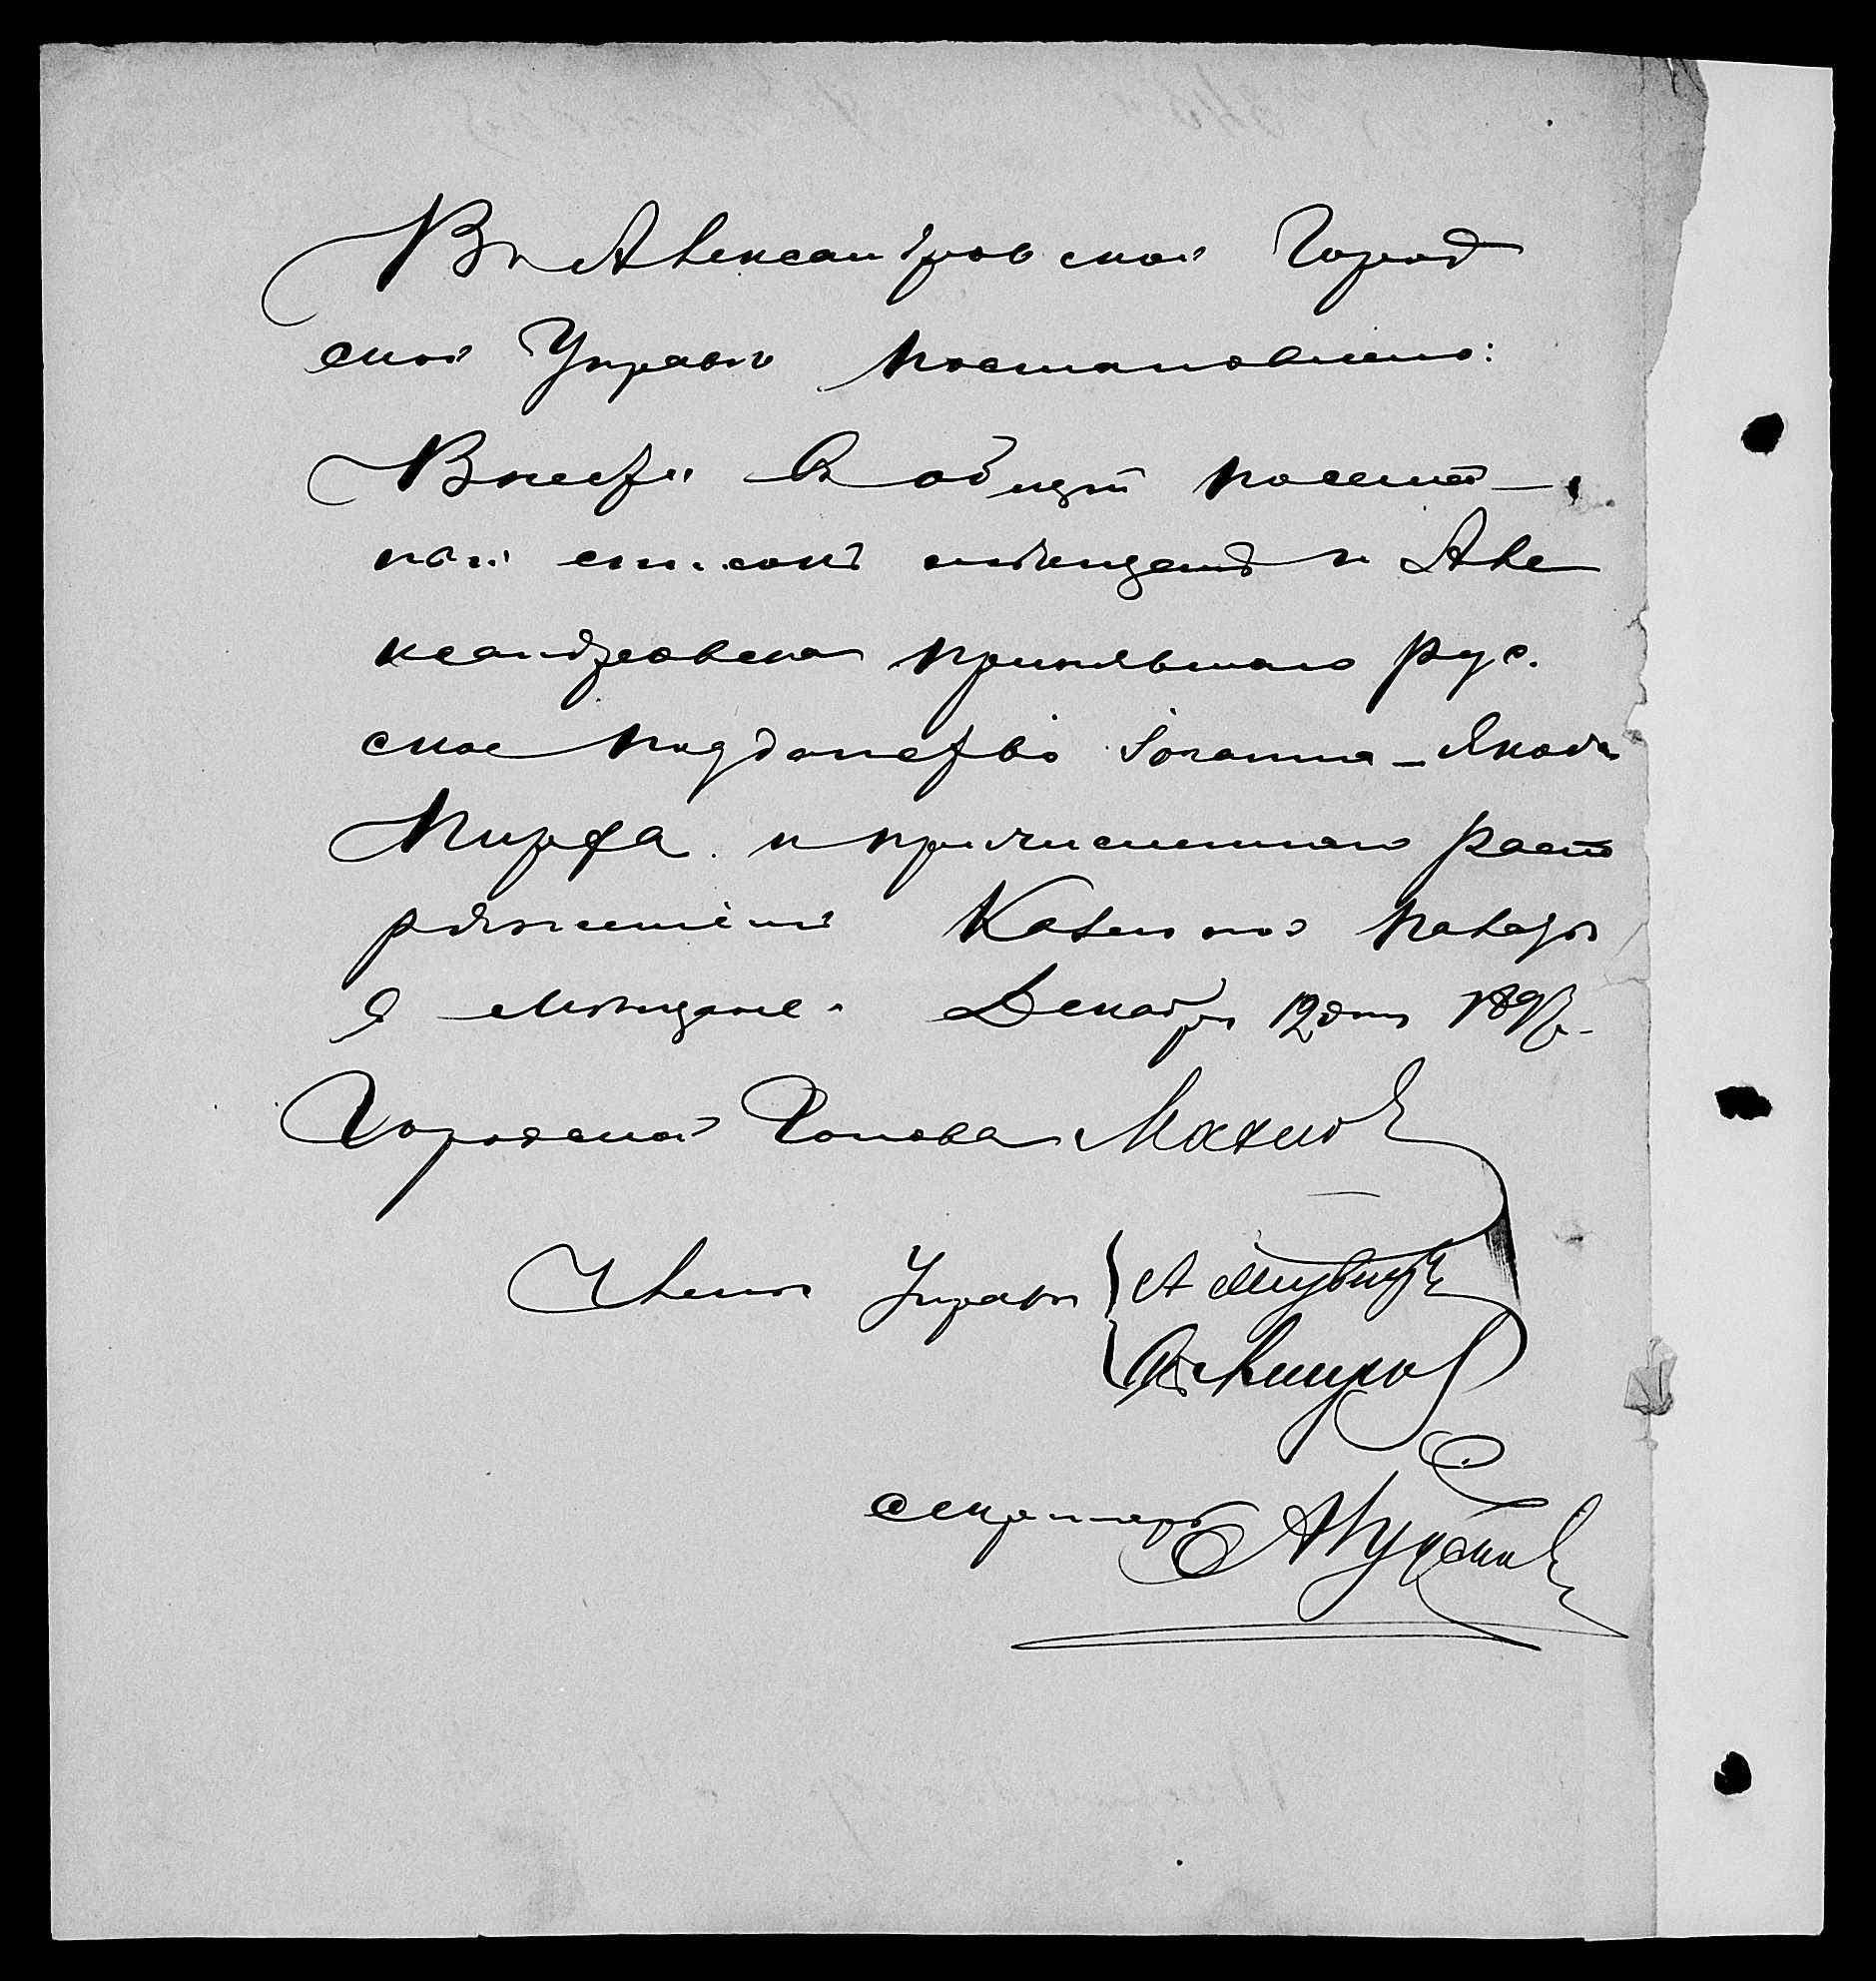 Въ Александровской Город
ской Управѣ постановлено:
Внести въ общій посемей-
ный списокъ мѣщанъ г. Але
ксандровска принявшаго рус.
ское подданство Іоганна-Якова
Пирфа и причисленнаго распо
ряженіемъ Казенной Палаты
въ мѣщане. Декабря 12 дня
Городской Голова Махно
Члены Управы
Секретарь